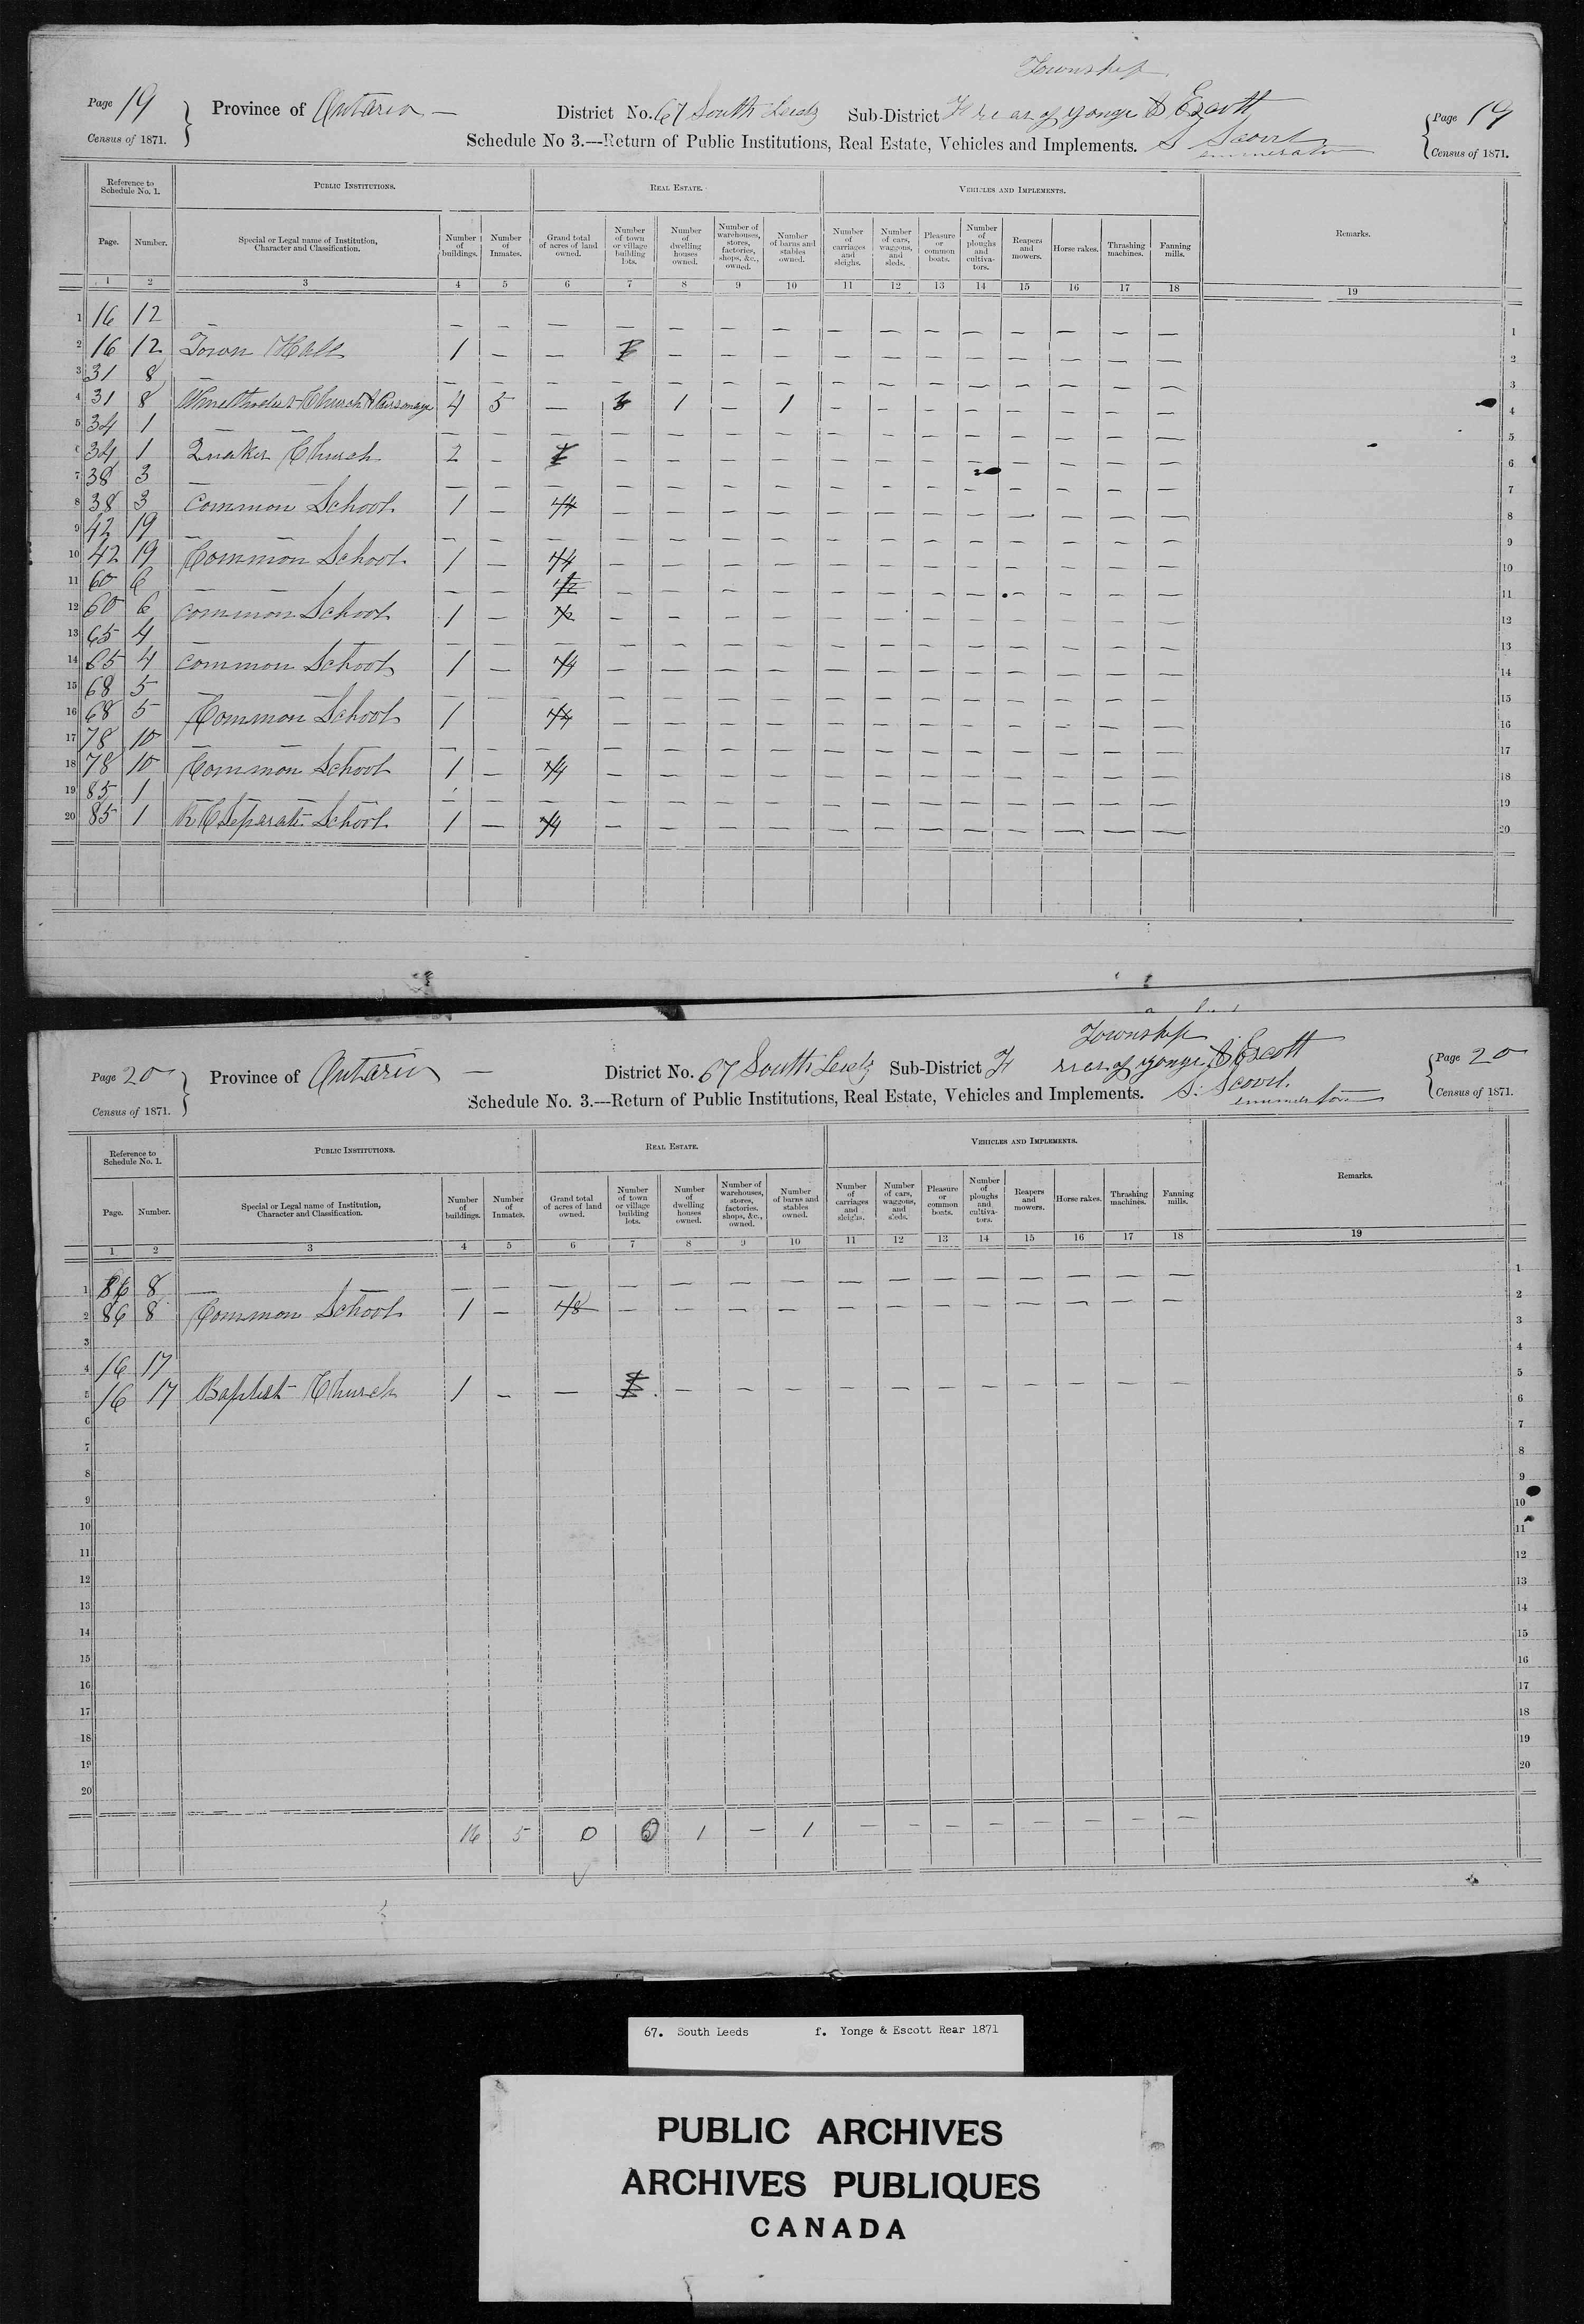 Township
Page 19 Province of Ontario — District No. 67 South Leeds Sub-District F rear of Yonge & Escott Page 19
Census of 1871. Schedule No 3.—Return of Public Institutions, Real Estate, Vehicles and Implements. S Scovil enumerator Census of 1871.
Reference to Schedule No. 1. PUBLIC INSTITUTIONS. REAL ESTATE. VEHICLES AND IMPLEMENTS. Remarks.
Page. Number. Special or Legal name of Institution, Character and Classification. Number of buildings. Number of Inmates. Grand total of acres of land owned. Number of town or village building lots. Number of dwelling houses owned. Number of warehouses, stores, factories, shops, &c., owned. Number of barns and stables owned. Number of carriages and sleighs. Number of cars, waggons, and sleds. Pleasure or common boats. Number of ploughs and cultivators. Reapers and mowers. Horse rakes. Thrashing machines. Fanning mills.
1 2 3 4 5 6 7 8 9 10 11 12 13 14 15 16 17 18 19
1 16 12 — — — — — — — — — — — — — — — — 1
2 16 12 Town Hall 1 — — — — — — — — — — — — — 2
3 31 8 — — — — — — — — — — — — — — — — 3
4 31 8 Methodist Church & Parsonage 4 5 — 1 — 1 — — — — — — — — 4
5 34 1 — — — — — — — — — — — — — — — — 5
6 34 1 Quaker Church 2 — — — — — — — — — — — — — 6
7 38 3 — — — — — — — — — — — — — — — — 7
8 38 3 Common School 1 — 1/4 — — — — — — — — — — — — 8
9 42 19 — — — — — — — — — — — — — — — — 9
10 42 19 Common School 1 — 1/4 — — — — — — — — — — — — 10
11 60 6 — — — 1/2 — — — — — — — — — — — — 11
12 60 6 Common School 1 — 1/2 — — — — — — — — — — — — 12
13 65 4 — — — — — — — — — — — — — — — — 13
14 65 4 Common School 1 — 1/4 — — — — — — — — — — — — 14
15 68 5 — — — — — — — — — — — — — — — 15
16 68 5 Common School 1 1/4 — — — — — — — — — — — — 16
17 78 10 — — — — — — — — — — — — — — — — 17
18 78 10 Common School 1 — 1/4 — — — — — — — — — — — — 18
19 85 1 — — — — — — — — — — — — — — — 19
20 85 1 R C Separate School 1 — 1/4 — — — — — — — — — — — — 20
Township
Page 20 Province of Ontario — District No. 67 South Leeds Sub-District F rear of Yonge & Escott Page 20
Census of 1871. Schedule No. 3.—Return of Public Institutions, Real Estate, Vehicles and Implements. S. Scovil. enumerator Census of 1871.
Reference to Schedule No. 1. PUBLIC INSTITUTIONS. REAL ESTATE. VEHICLES AND IMPLEMENTS. Remarks.
Page. Number. Special or Legal name of Institution, Character and Classification. Number of buildings. Number of Inmates. Grand total of acres of land owned. Number of town or village building lots. Number of dwelling houses owned. Number of warehouses, stores, factories, shops, &c., owned. Number of barns and stables owned. Number of carriages and sleighs. Number of cars, waggons, and sleds. Pleasure or common boats. Number of ploughs and cultivators. Reapers and mowers. Horse rakes. Thrashing machines. Fanning mills.
1 2 3 4 5 6 7 8 9 10 11 12 13 14 15 16 17 18 19
1 86 8 — — — — — — — — — — — — — — — — 1
2 86 8 Common School 1 — 1/8 — — — — — — — — — — — — 2
3 3
4 16 17 4
5 16 17 Baptist Church 1 — — — — — — — — — — — — — 5
6 6
7 7
8 8
9 9
10 10
11 11
12 12
13 13
14 14
15 15
16 16
17 17
18 18
19 19
20 20
16 5 0 6 1 — 1 — — — — — — — —
67. South Leeds f. Yonge & Escott Rear 1871
PUBLIC ARCHIVES
ARCHIVES PUBLIQUES
CANADA